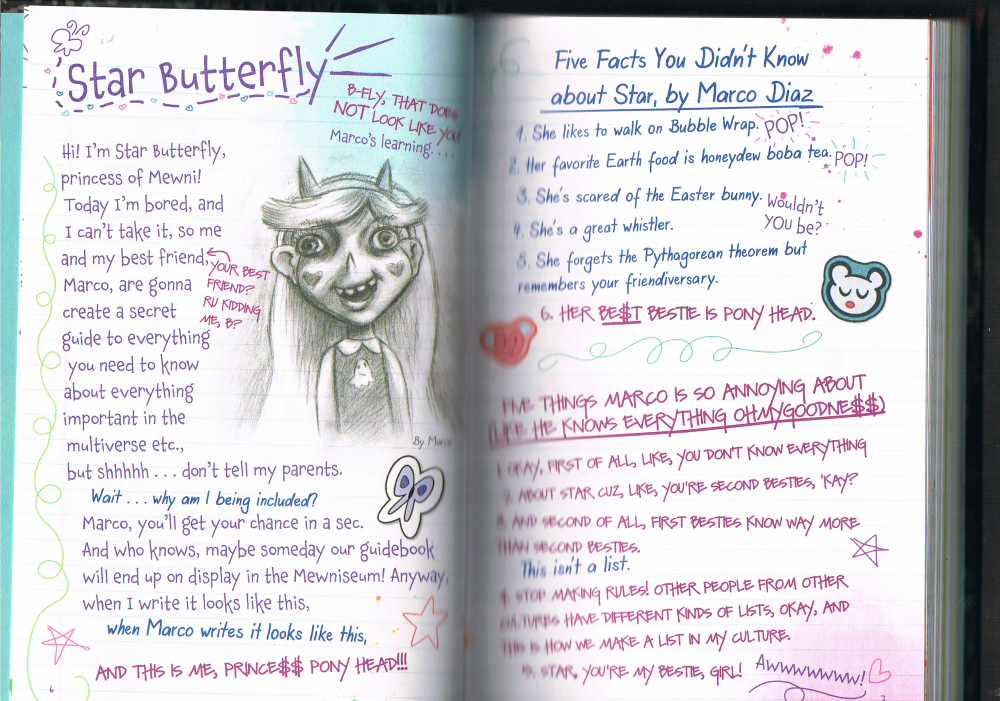 Star Butterfly
B-FLY, THAT DOES
NOT LOOK LIKE YOU!
Marco's learning. . . .
Hi! I'm Star Butterfly,
princess of Mewni!
Today I'm bored, and
I can't take it, so me
and my best friend,
Marco, are gonna
create a secret
guide to everything
you need to know
about everything
important in the
multiverse etc.,
but shhhhh . . . don't tell my parents.
YOUR BEST
FRIEND?
RU KIDDING
ME, B?
By Marco
Wait . . . why am I being included?
Marco, you'll get your chance in a sec.
And who knows, maybe someday our guidebook
will end up on display in the Mewniseum! Anyway,
when I write it looks like this,
when Marco writes it looks like this,
AND THIS IS ME, PRINCE$$ PONY HEAD!!!
6
Five Facts You Didn't Know
about Star, by Marco Diaz
1. She likes to walk on Bubble Wrap. POP!
2. Her favorite Earth food is honeydew boba tea. POP!
3. She's scared of the Easter bunny. Wouldn't
YOU be?
4. She's a great whistler.
5. She forgets the Pythagorean theorem but
remembers your friendiversary.
6. HER BE$T BESTIE IS PONY HEAD.
FIVE THINGS MARCO IS SO ANNOYING ABOUT
(LIKE HE KNOWS EVERYTHING OHMYGOODNE$$)
1. OKAY, FIRST OF ALL, LIKE, YOU DON'T KNOW EVERYTHING
2. ABOUT STAR CUZ, LIKE, YOU'RE SECOND BESTIES, 'KAY?
3. AND SECOND OF ALL, FIRST BESTIES KNOW WAY MORE
THAN SECOND BESTIES.
This isn't a list.
4. STOP MAKING RULES! OTHER PEOPLE FROM OTHER
CULTURES HAVE DIFFERENT KINDS OF LISTS, OKAY, AND
THIS IS HOW WE MAKE A LIST IN MY CULTURE.
5. STAR, YOU'RE MY BESTIE, GIRL! Awwwwwww!